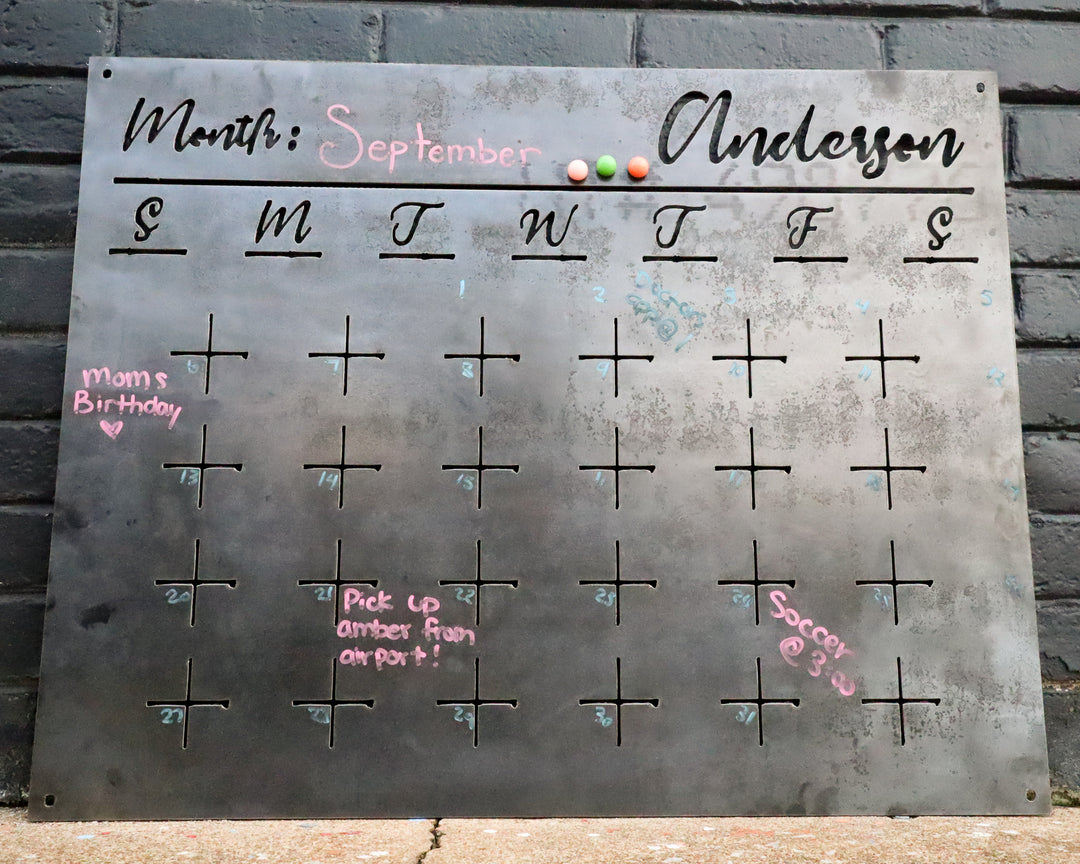 Month: September Anderson
S M T W T F S
1 2 3 4 5
Doctors
app@1
6 7 8 9 10 11 12
Moms
Birthday
13 14 15
20 21 22
Pick up
amber from
airport!
Soccer
@ 3:00
27 28 29 30 31